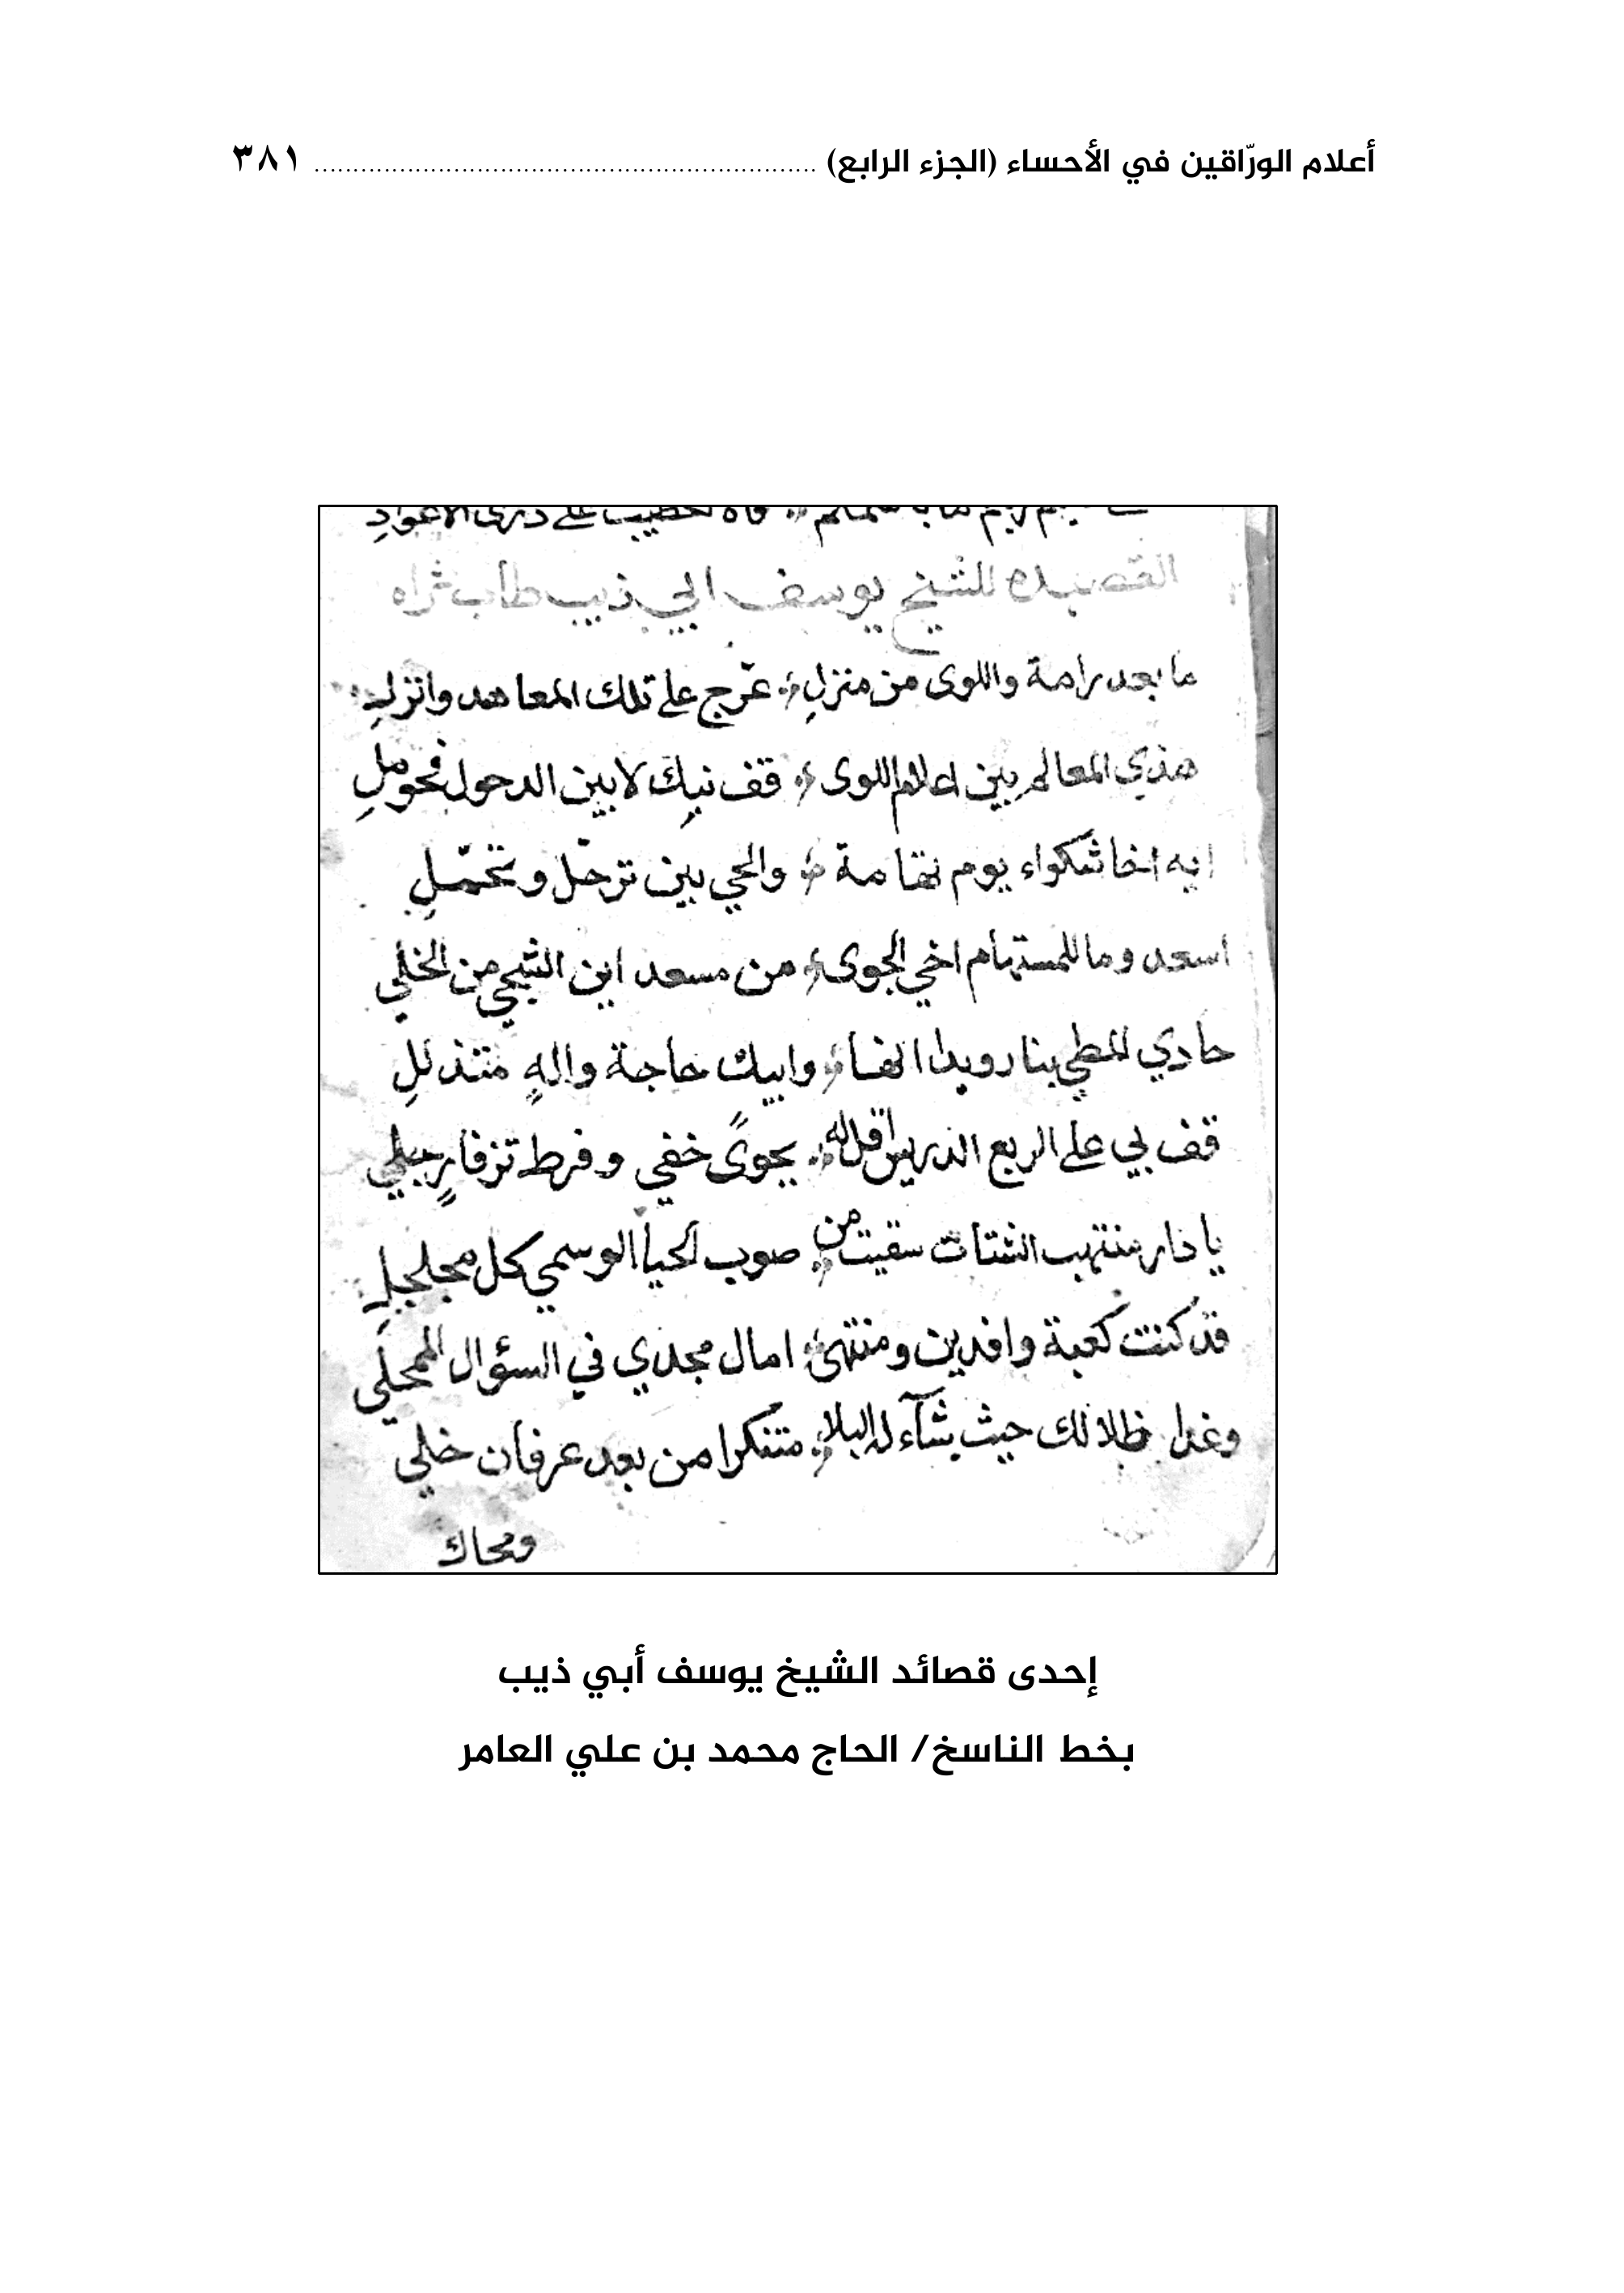 أعلام الورّاقين في الأحساء (الجزء الرابع) ................................................................ ٣٨١
على ذرى الاعوادِ
القصيده للشيخ يوسف ابي ذيب طاب ثراه
ما بعد رامة واللوى من منزلِ عرّج على تلك المعاهد وانزلِ
هذي المعالم بين اعلام اللوى قف نبك لا بين الدحول فحوملِ
ايه اخا شكواء يوم تهامة والحي بين ترحّل وتحمّلِ
اسعد وما للمستهام اخي الجوى من مسعد اين الشجي من الخلي
حادي المطي بنا رويدا انها وابيك حاجة والهٍ متذللِ
قف بي على الربع الدريس اقل له بجوىً خفي وفرط تزفارٍ جلي
يا دار منتهب الشتات سقيت من صوب الحيا الوسمي كل مجلجلِ
قد كنت كعبة وافدين ومنتهى امال مجدي في السؤال الممحلي
وغدا ظلالك حيث يشآء له البلا متنكرا من بعد عرفان خلي
ومحاك
إحدى قصائد الشيخ يوسف أبي ذيب
بخط الناسخ/ الحاج محمد بن علي العامر